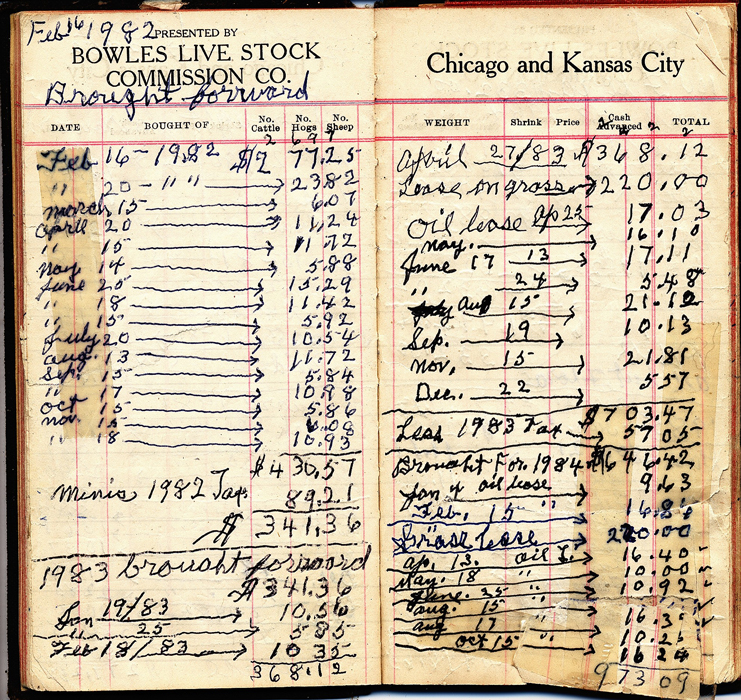 Feb 16 1982
PRESENTED BY
BOWLES LIVE STOCK
COMMISSION CO.
Brought forward
DATE BOUGHT OF No. Cattle No. Hogs No. Sheep
Feb 16 - 1982 $ 77.25
" 20 - " " 23.82
March 15 6.07
April 20 11.24
" 15 11.72
May 14 5.88
June 25 15.29
" 18 11.42
" 15 5.92
July 20 10.54
Aug. 13 11.72
Sep. 15 5.84
" 17 10.98
Oct 15 5.86
Nov. 15 6.08
" 18 10.93
$430.57
Minis 1982 Tax 89.21
$ 341.36
1983 brought forward
$341.36
Jan 19/83 10.56
" 25 5.85
Feb 18/83 10.35
368.12
Chicago and Kansas City
WEIGHT Shrink Price Cash Advanced TOTAL
April 27/83 $368.12
Lease on grass 220.00
Oil lease Ap 25 17.03
May. 16.10
June 17 13 17.11
" 24 5.48
Aug 15 21.12
Sep. 19 10.13
Nov. 15 21.81
Dec. 22 5.57
$703.47
Less 1983 Tax 57.05
Brought For. 1984 $646.42
Jan 4 oil lease 9.63
Feb. 15 " 16.86
Grass Lease 220.00
Ap. 13. oil L. 16.40
May. 18 " 10.00
June. 25 " 10.92
Aug. 15 "
Aug 17 " 10.25
Oct 15 " 16.24
973 09